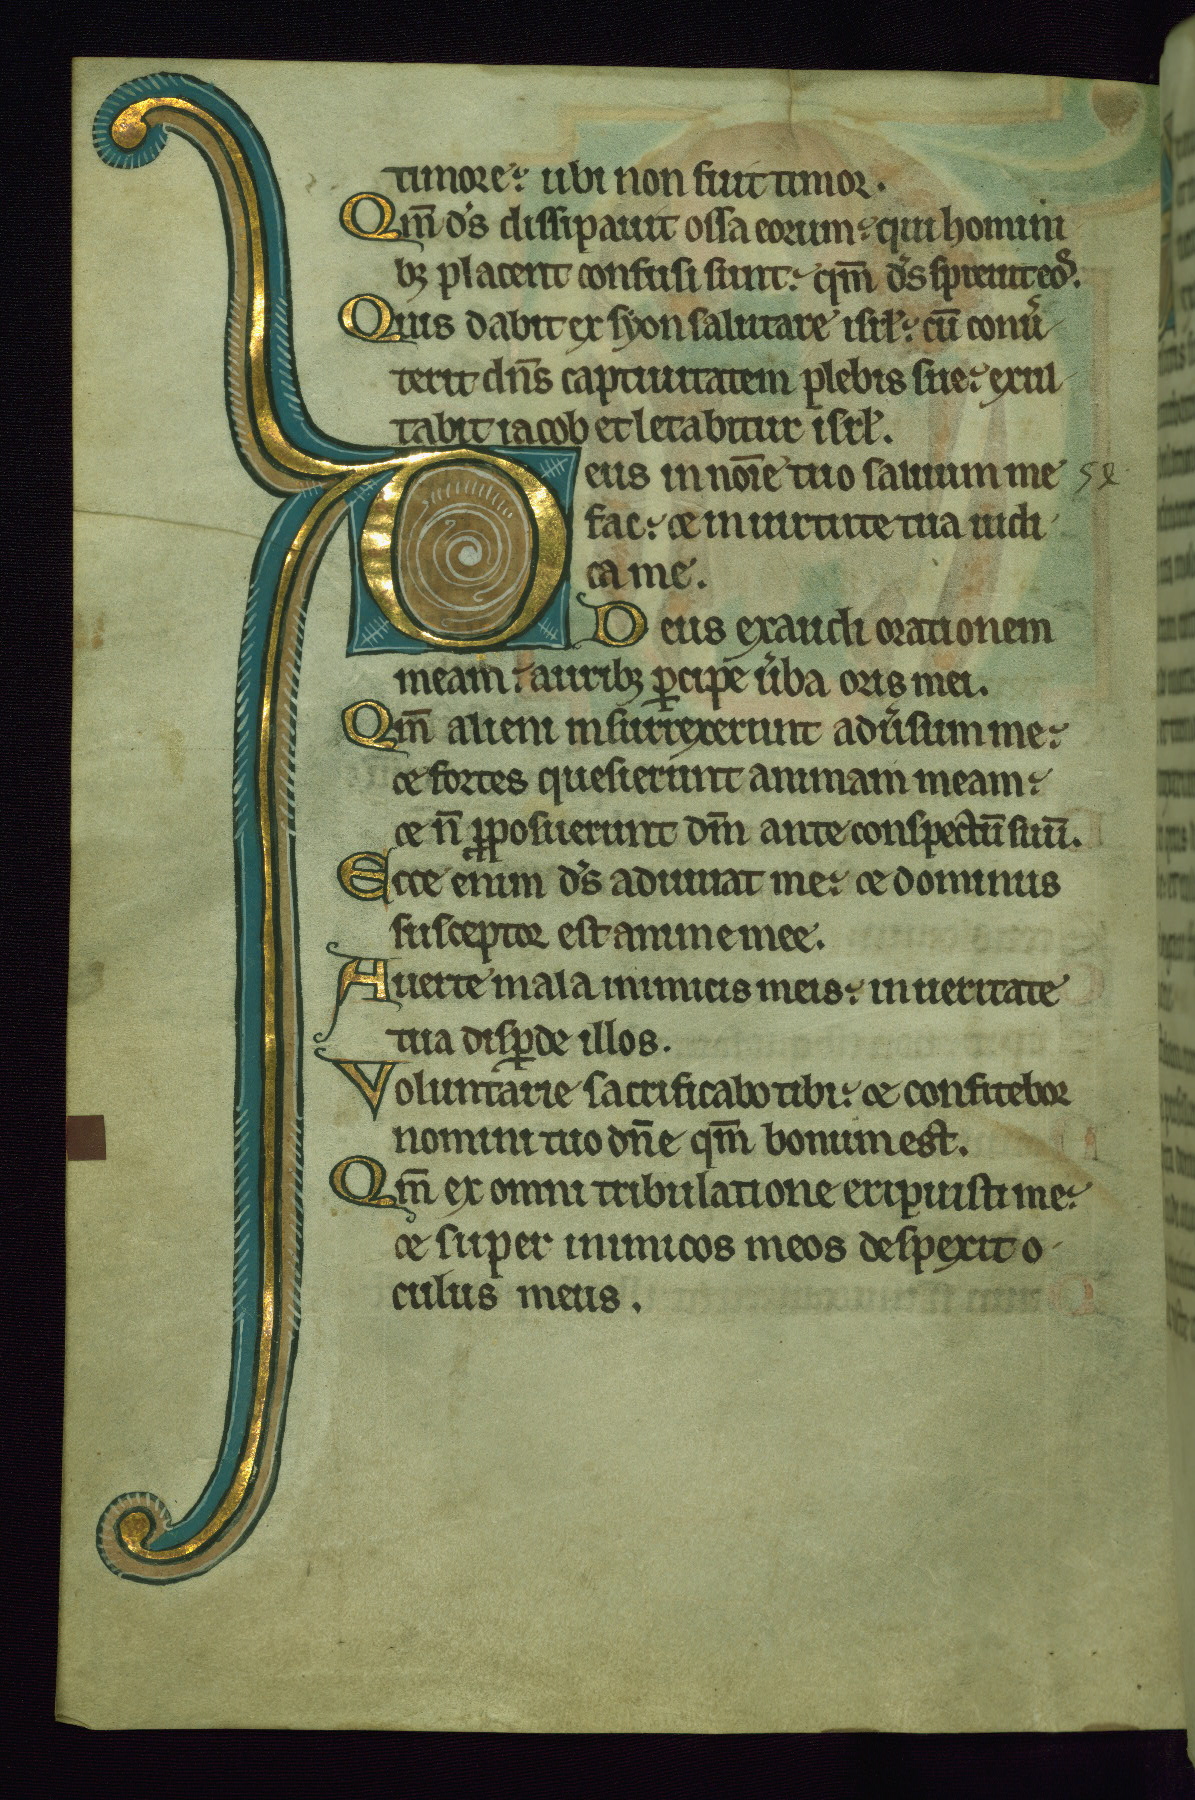 timore: ubi non fuit timor.
Qm̄ ds̄ dissipauit ossa eorum: qui homini
bꝫ placent confusi sunt: qm̄ ds̄ spreuit eos.
Quis dabit ex syon salutare isrl̄: cū conu̾
terit dn̄s captiuitatem plebis sue: exul
tabit iacob et letabitur isrl̄.
Deus in noīe tuo saluum me
fac: & in uirtute tua iudi
ca me.
Deus exaudi orationem
meam: auribꝫ ꝑcipe u̾ba oris mei.
Qm̄ alieni insurrexerunt adu̾sum me:
& fortes quesierunt animam meam:
& n̄ ꝓposuerunt dm̄ ante conspectū suū.
Ecce enim ds̄ adiuuat me: & dominus
susceptor est anime mee.
Auerte mala inimicis meis: in ueritate
tua disꝑde illos.
Voluntarie sacrificabo tibi: & confitebor
nomini tuo dn̄e qm̄ bonum est.
Qm̄ ex omni tribulatione eripuisti me:
& super inimicos meos despexit o
culus meus.